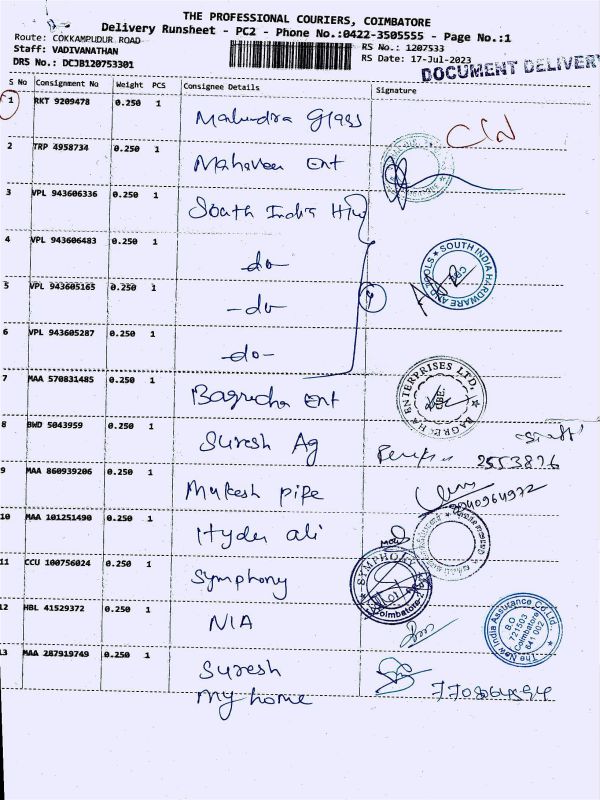 THE PROFESSIONAL COURIERS, COIMBATORE
Delivery Runsheet - PC2 - Phone No.:0422-3505555 - Page No.:1
Route: COKKAMPUDUR ROAD
RS No.: 1207533
Staff: VADIVANATHAN
RS Date: 17-Jul-2023
DRS No.: DCJB120753301
DOCUMENT DELIVERY
S No Consignment No Weight PCS Consignee Details Signature
1 RKT 9209478 0.250 1 Mahindra Glass
2 TRP 4958734 0.250 1 Mahaveer Ent
3 VPL 943606336 0.250 1 South India H/w
4 VPL 943606483 0.250 1 -do-
SOUTH INDIA HARDWARE AND TOOLS CBE
5 VPL 943605165 0.250 1 -do- 4
6 VPL 943605287 0.250 1 -do-
7 MAA 570831485 0.250 1 Bagrecha Ent
BAGRECHA ENTERPRISES LTD, CBE
8 BWD 5043959 0.250 1 Suresh Ag
9 MAA 860939206 0.250 1 Mukesh pipe
10 MAA 101251490 0.250 1 Hyder ali
11 CCU 100756024 0.250 1 Symphony
SYMPHONY Coimbatore-2
12 HBL 41529372 0.250 1 NIA
The New India Assurance Co.Ltd.
B.O
721503
Coimbatore
641 002
13 MAA 287919749 0.250 1 Suresh
My home